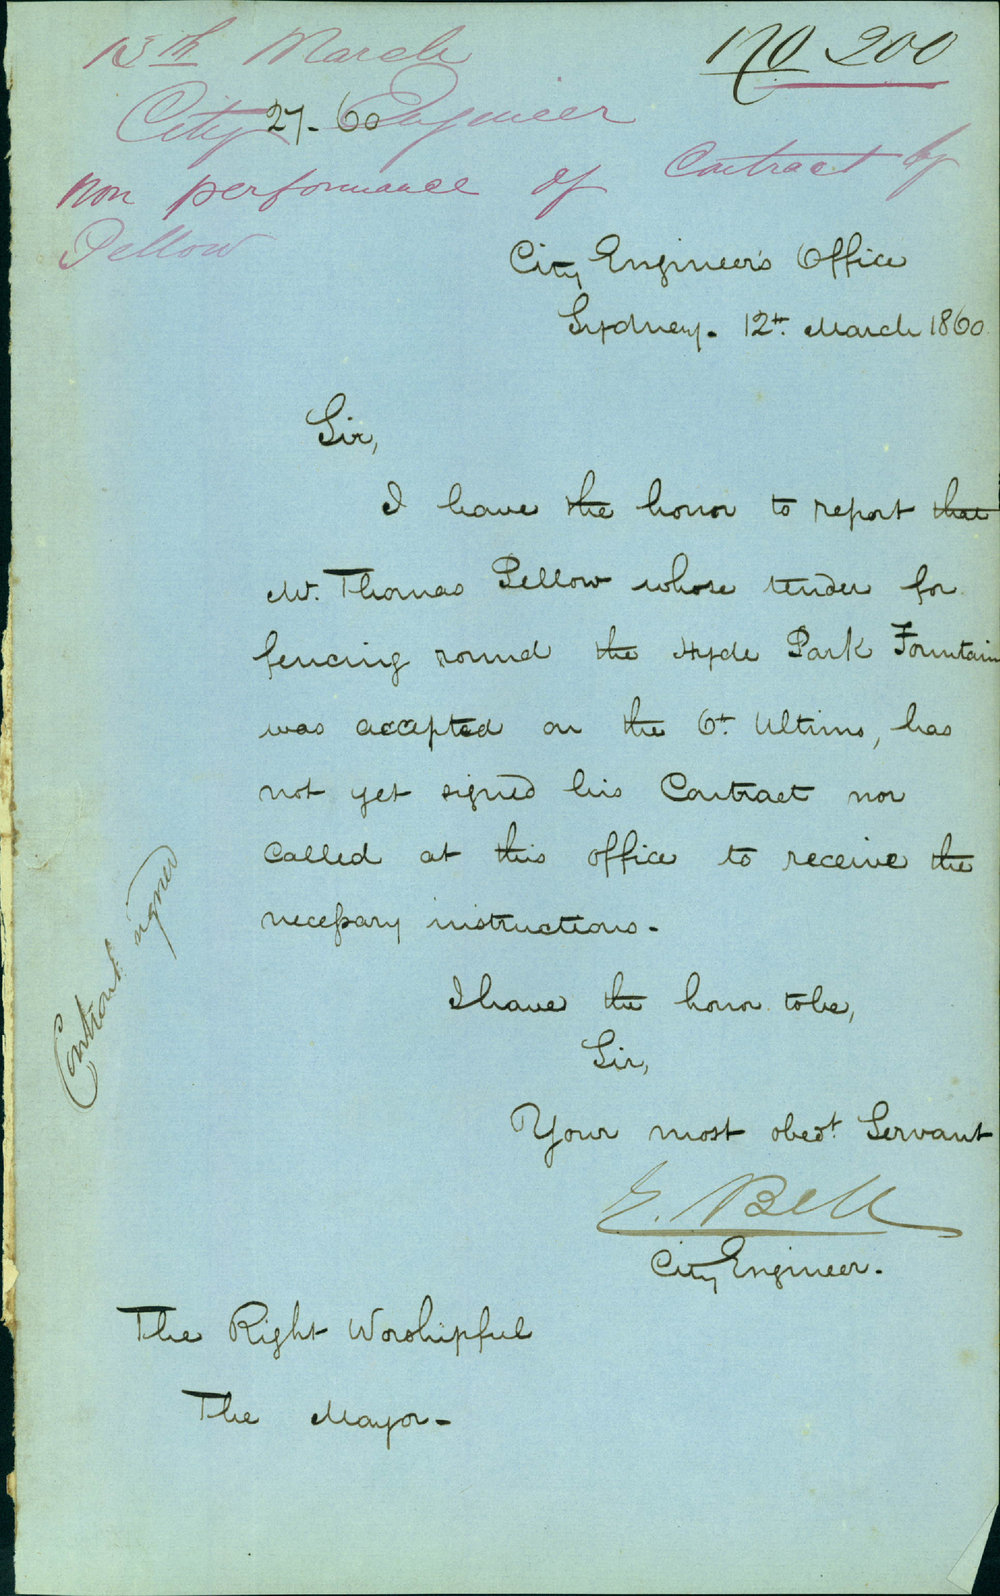 13th March
No 200
City Engineer
27-60
non performance of Contract by
Pellow
City Engineer's Office
Sydney. 12th. March 1860
Sir,
I have the honor to report that
Mr. Thomas Pellow whose tender for
fencing round the Hyde Park Fountain
was accepted on the 6th. Ultimo, has
not yet signed his Contract nor
called at this office to receive the
necessary instructions.
Contract signed
I have the honor to be,
Sir,
Your most obedt. Servant
E. Bell
City Engineer.
The Right Worshipful
The Mayor-